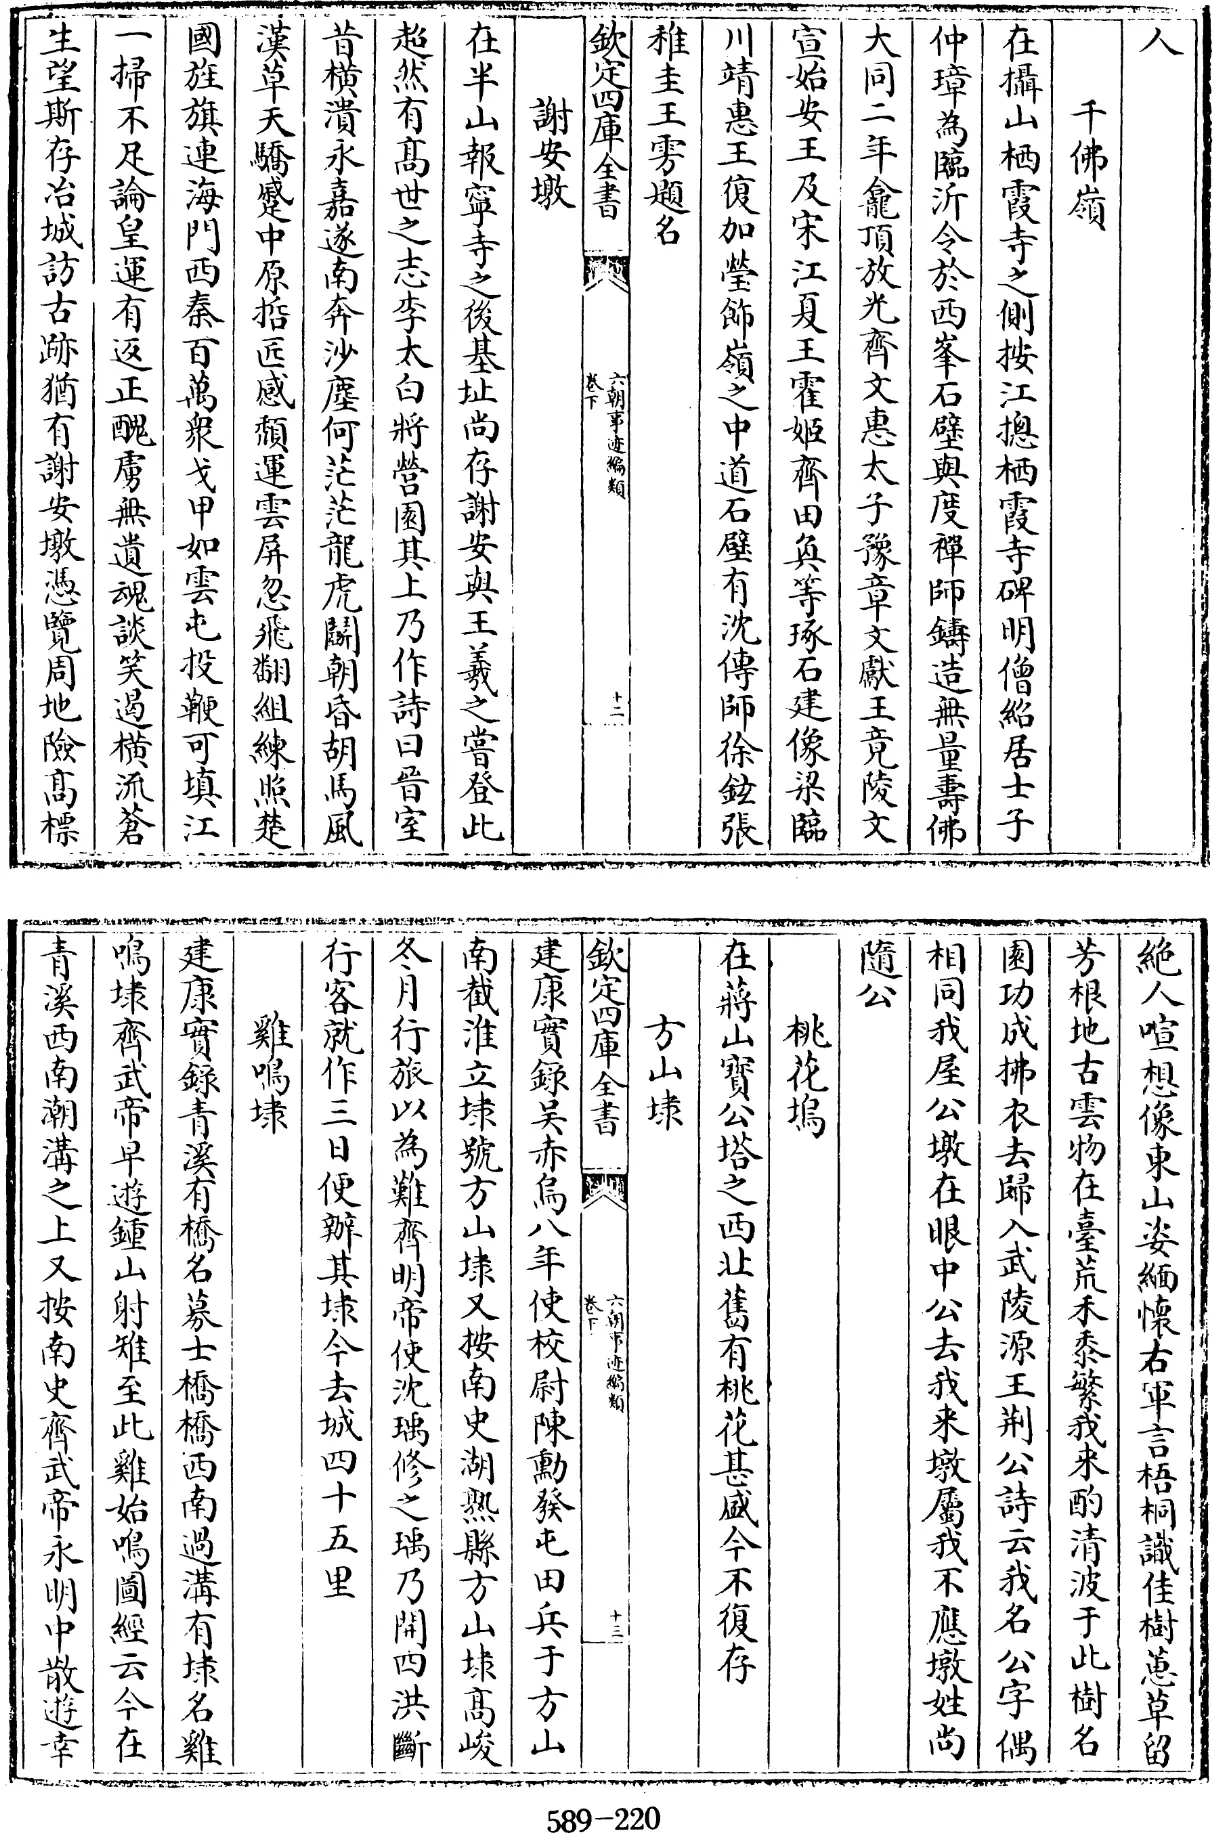 人
千佛嶺
在攝山栖霞寺之側按江揔栖霞寺碑明僧紹居士子
仲璋為臨沂令於西峯石壁與度禪師鑄造無量壽佛
大同二年龕頂放光齊文惠太子豫章文獻王竟陵文
宣始安王及宋江夏王霍姬齊田奐等琢石建像梁臨
川靖惠王復加瑩飾嶺之中道石壁有沈傳師徐鉉張
稚圭王雱題名
欽定四庫全書
六朝事迹編類
卷下
十二
謝安墩
在半山報寧寺之後基址尚存謝安與王羲之嘗登此
超然有髙世之志李太白將營園其上乃作詩曰晉室
昔横潰永嘉遂南奔沙塵何茫茫龍虎鬭朝昏胡馬風
漢草天驕蹙中原哲匠感頽運雲屏忽飛翻組練照楚
國旌旗連海門西秦百萬衆戈甲如雲屯投鞭可填江
一掃不足論皇運有返正醜虜無遺魂談笑遏横流蒼
生望斯存冶城訪古跡猶有謝安墩憑覽周地險髙標
絶人喧想像東山姿緬懷右軍言梧桐識佳樹蕙草留
芳根地古雲物在臺荒禾黍繁我來酌清波于此樹名
園功成拂衣去歸入武陵源王荆公詩云我名公字偶
相同我屋公墩在眼中公去我来墩屬我不應墩姓尚
隨公
桃花塢
在蔣山寶公塔之西北舊有桃花甚盛今不復存
方山埭
欽定四庫全書
六朝事迹編類
卷下
十三
建康實録吴赤烏八年使校尉陳勳發屯田兵于方山
南截淮立埭號方山埭又按南史湖熟縣方山埭髙峻
冬月行旅以為難齊明帝使沈瑀修之瑀乃開四洪斷
行客就作三日便辦其埭今去城四十五里
雞鳴埭
建康實録青溪有橋名募士橋橋西南過溝有埭名雞
鳴埭齊武帝早遊鍾山射雉至此雞始鳴圖經云今在
青溪西南潮溝之上又按南史齊武帝永明中散遊幸
589-220